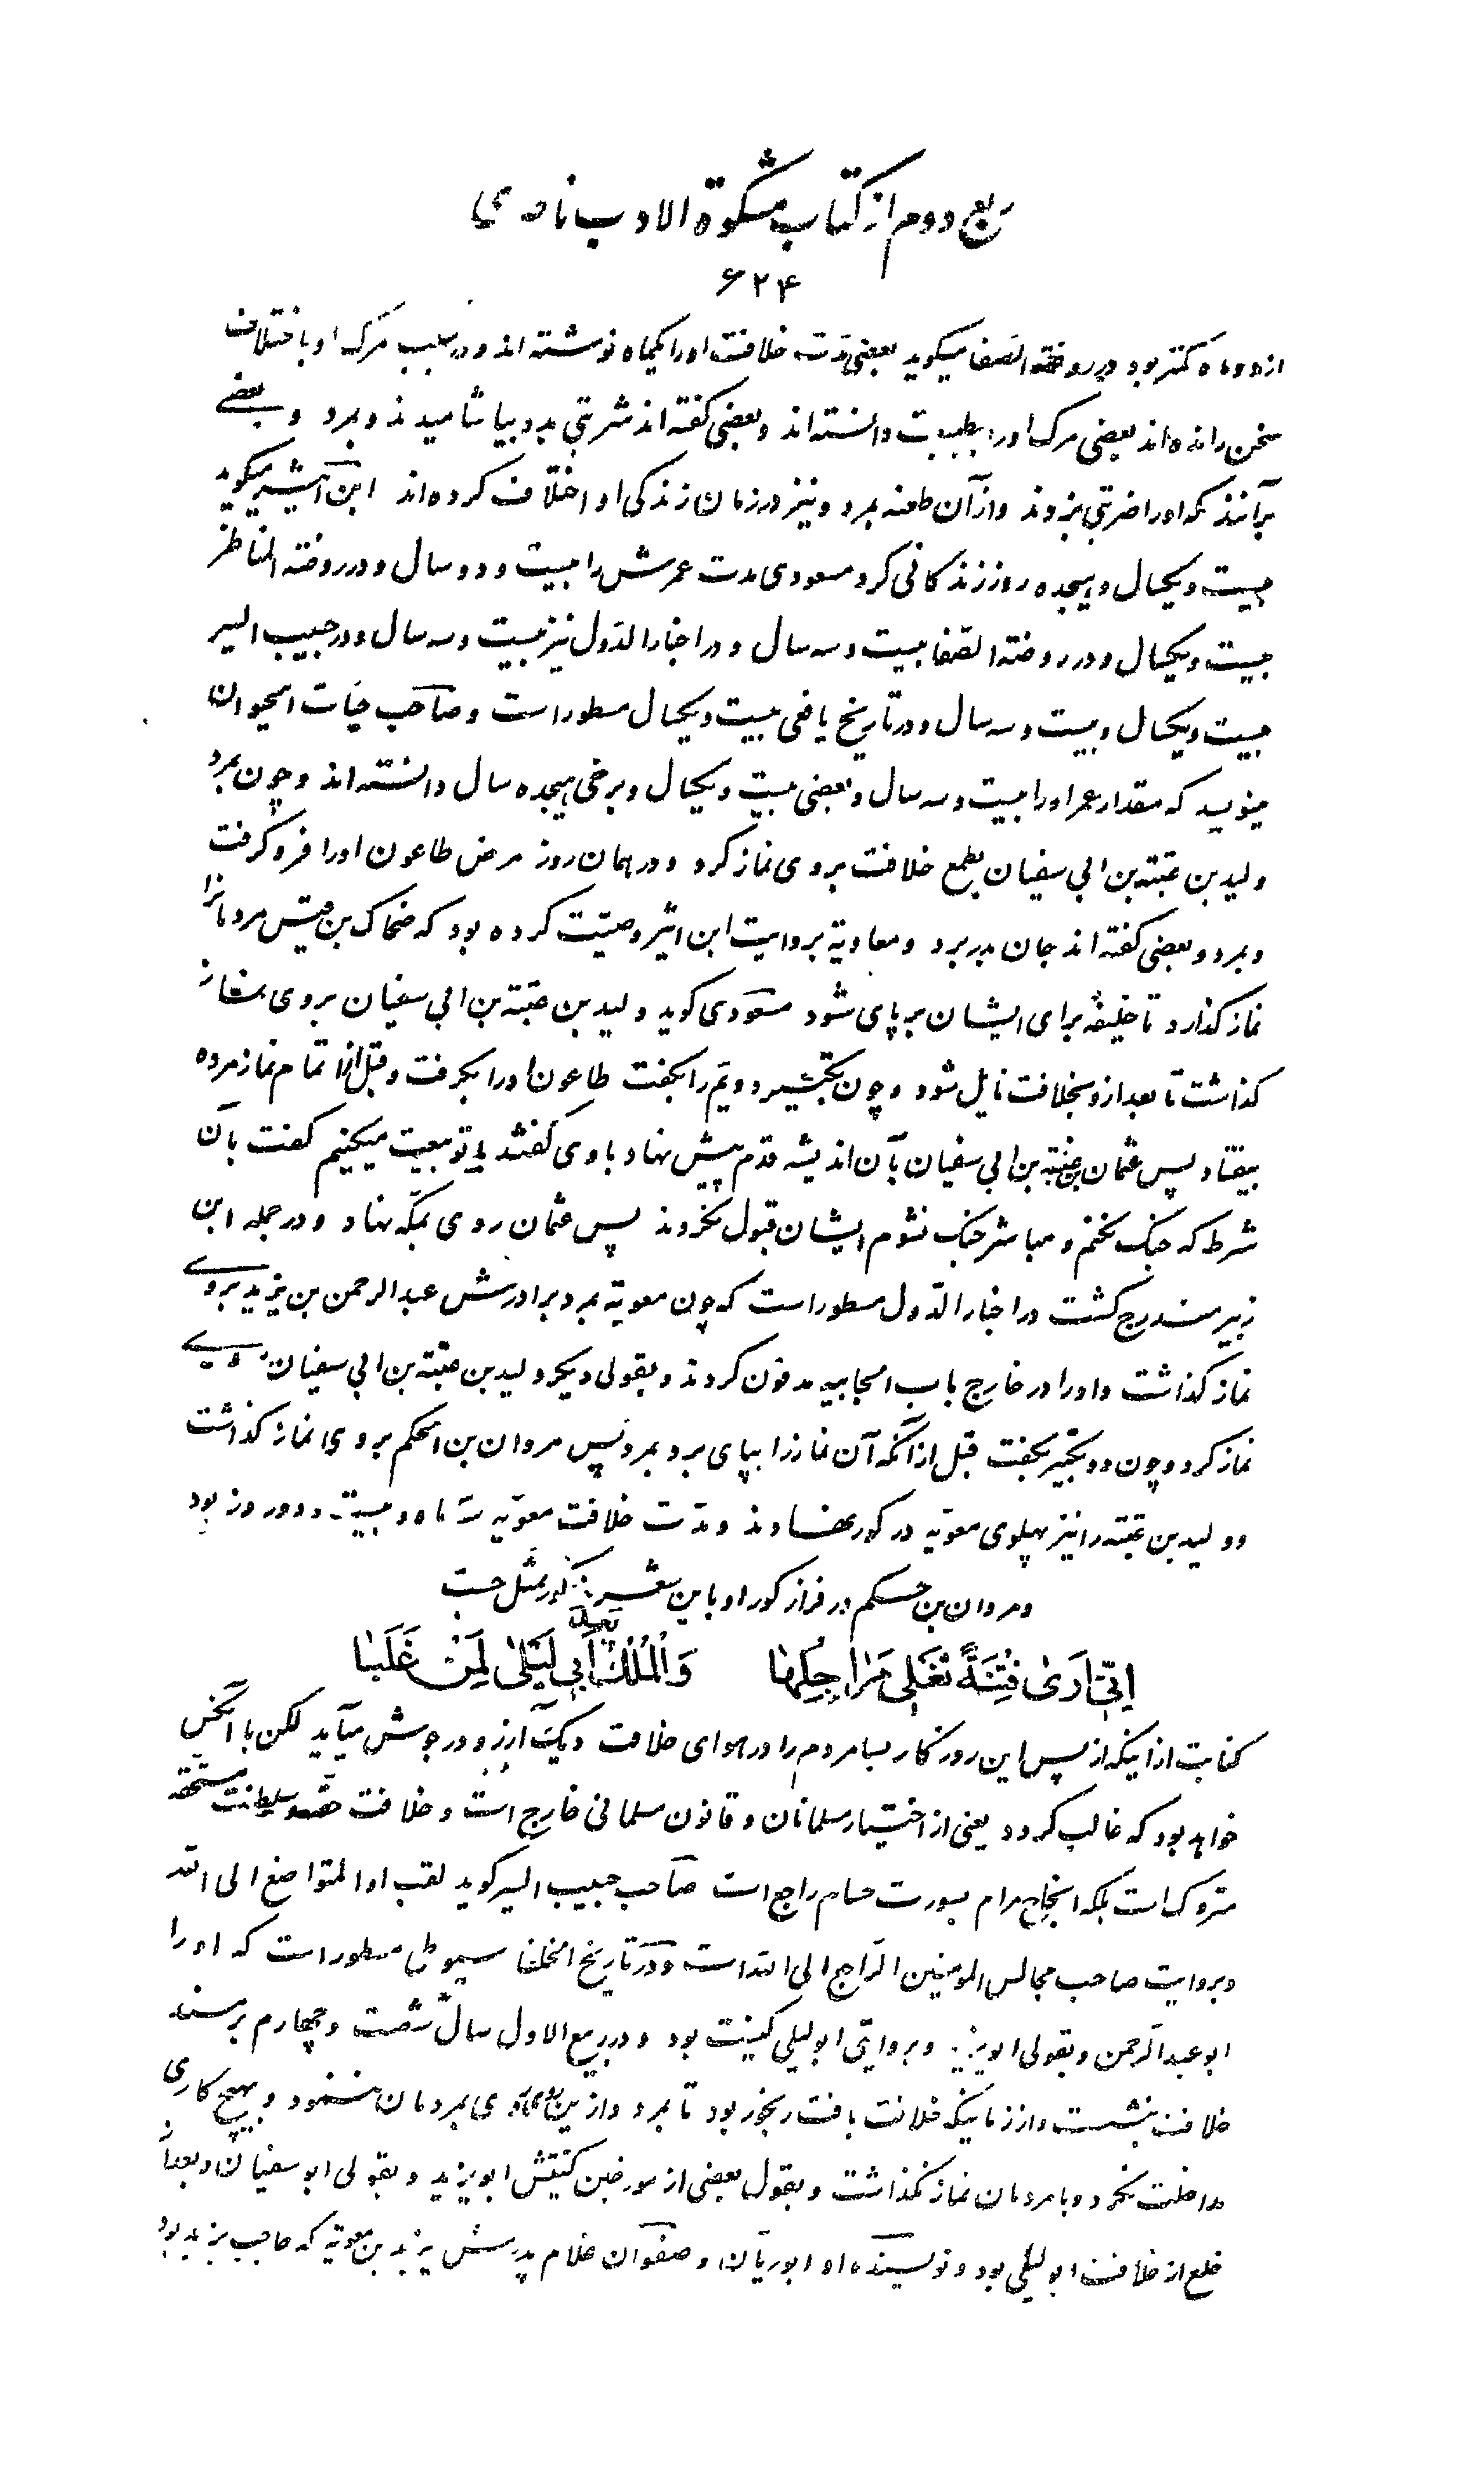 ربع دوم از کتاب مشکوة الادب ناصری
۶۲۴
از دو ماه کمتر بود در روضة الصفا میکوید بعضی مدت خلافت او را یکماه نوشته اند و در سبب مرک او باختلاف
سخن رانده اند بعضی مرک او را بطبیعت دانسته اند و بعضی کفته اند شربتی بدو بیاشامیدند و بمرد و بعضی
برآنند که او را ضربتی بزدند و از آن طعنه بمرد و نیز در زمان زندکی او اختلاف کرده اند ابن اثیر میکوید
بیست و یکسال و هیجده روز زندکانی کرد مسعودی مدت عمرش را بیست و دو سال و در روضة المناظر
بیست و یکسال و در روضة الصفا بیست و سه سال و در اخبار الدول نیز بیست و سه سال و در حبیب السیر
بیست و یکسال و بیست و سه سال و در تاریخ یافعی بیست و یکسال مسطور است و صاحب حیات الحیوان
مینویسد که مقدار عمر او را بیست و سه سال و بعضی بیست و یکسال و برخی هیجده سال دانسته اند و چون بمرد
ولید بن عتبة بن ابی سفیان بطمع خلافت بر وی نماز کرد و در همان روز مرض طاعون او را فرو کرفت
و بمرد و بعضی کفته اند جان بدر برد و معاویة بروایت ابن اثیر وصیت کرده بود که ضحاک بن قیس مردمانرا
نماز کذارد تا خلیفه برای ایشان بر پای شود مسعودی کوید ولید بن عتبة بن ابی سفیان بر وی نماز
کذاشت تا بعد از و بخلافت نایل شود و چون تکبیر دویم را بکفت طاعون او را بکرفت و قبل از اتمام نماز مرده
بیفتاد پس عثمان بن عتبة بن ابی سفیان بآن اندیشه قدم پیش نهاد با وی کفتند با تو بیعت میکنیم کفت بآن
شرط که جنک نکنم و مباشر جنک نشوم ایشان قبول نکردند پس عثمان روی بمکه نهاد و در جمله ابن
زبیر مندرج کشت در اخبار الدول مسطور است که چون معویة بمرد برادرش عبد الرحمن بن یزید بر وی
نماز کذاشت و او را در خارج باب الجابیه مدفون کردند و بقولی دیکر ولید بن عتبة بن ابی سفیان بر وی
نماز کرد و چون دو تکبیر بکفت قبل از آنکه آن نماز را بپای برد بمرد پس مروان بن الحکم بر وی نماز کذاشت
و ولید بن عتبه را نیز پهلوی معویه در کور نهادند و مدت خلافت معویه سه ماه و بیست و دو روز بود
و مروان بن حکم در فراز کور او باین شعر مذکور تمثل جست
اِنّی اَریٰ فِتْنَةً تَغْلی مَرٰاجِلُهٰا وَالْمُلْكُ بَعْدَ اَبی لَیْلیٰ لِمَنْ غَلَبٰا
کنایت از اینکه از پس این روزکار بسا مردم را در هوای خلافت دیک آرزو در جوش میآید لکن با آنکس
خواهد بود که غالب کردد یعنی از اختیار مسلمانان و قانون مسلمانی خارج است و خلافت حقه و سلطنت مستحقه
متروک است بلکه انجاح مرام بسورت حسام راجع است صاحب حبیب السیر کوید لقب او المتواضع الی الله
و بروایت صاحب مجالس المومنین الراجع الی الله است و در تاریخ الخلفا سیوطی مسطور است که او را
ابو عبد الرحمن و بقولی ابو یزید و بروایتی ابو لیلی کنیت بود و در ربیع الاول سال شصت و چهارم بر مسند
خلافت بنشست و از زمانیکه خلافت یافت رنجور بود تا بمرد و از این روی بمردمان ننمود و بهیچ کاری
مداخلت نکرد و با مردمان نماز نکذاشت و بقول بعضی از مورخین کنیتش ابو یزید و بقولی ابو سفیان و بعد از
خلع از خلافت ابو لیلی بود و نویسنده او ابو ریان و صفوان غلام پدرش یزید بن معویة که حاجب یزید بود